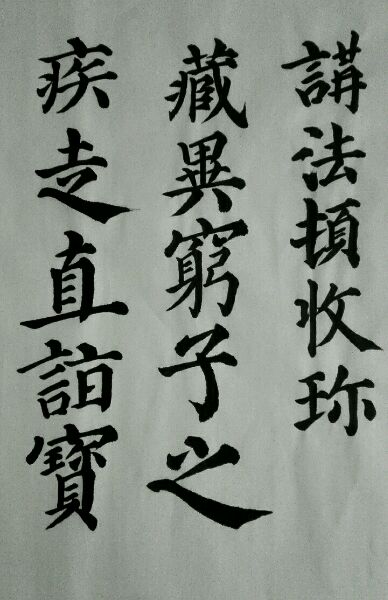 講法頓收珎
藏異窮子之
疾走直詣寶